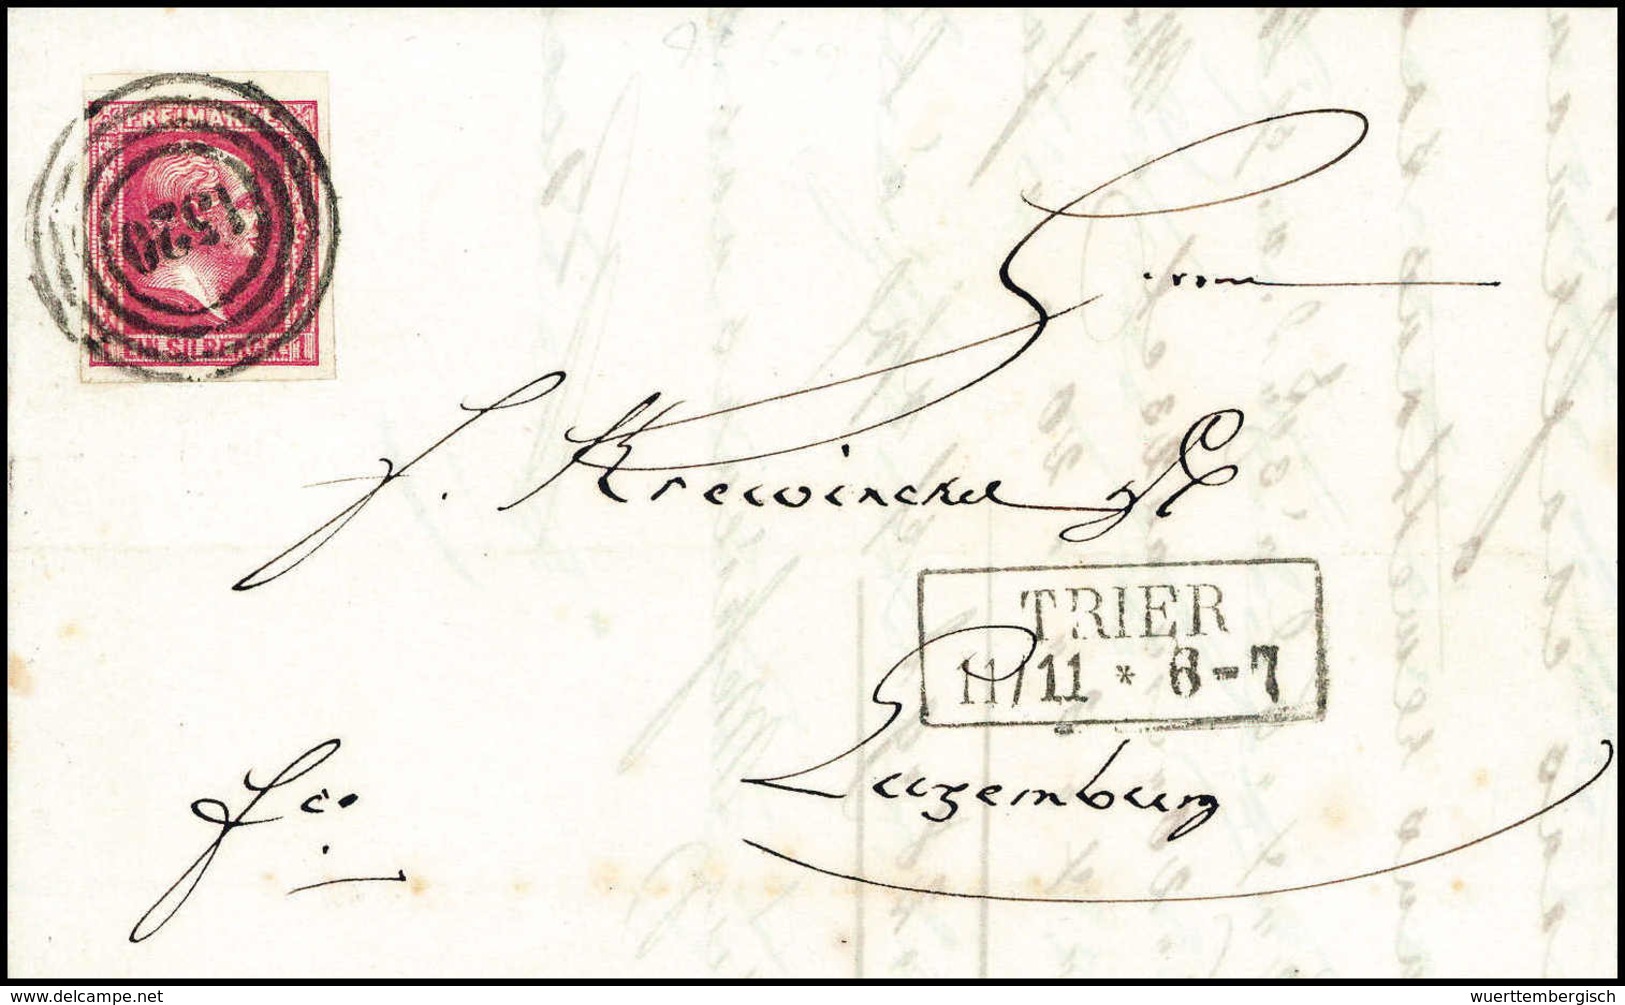 FREIMARKE
1520
EIN SILBERGR. 1
Herrn
J. Krewinckel & C
TRIER
11/11 * 6-7
fco.
Luxemburg
delcampe.net
wuerttembergisch